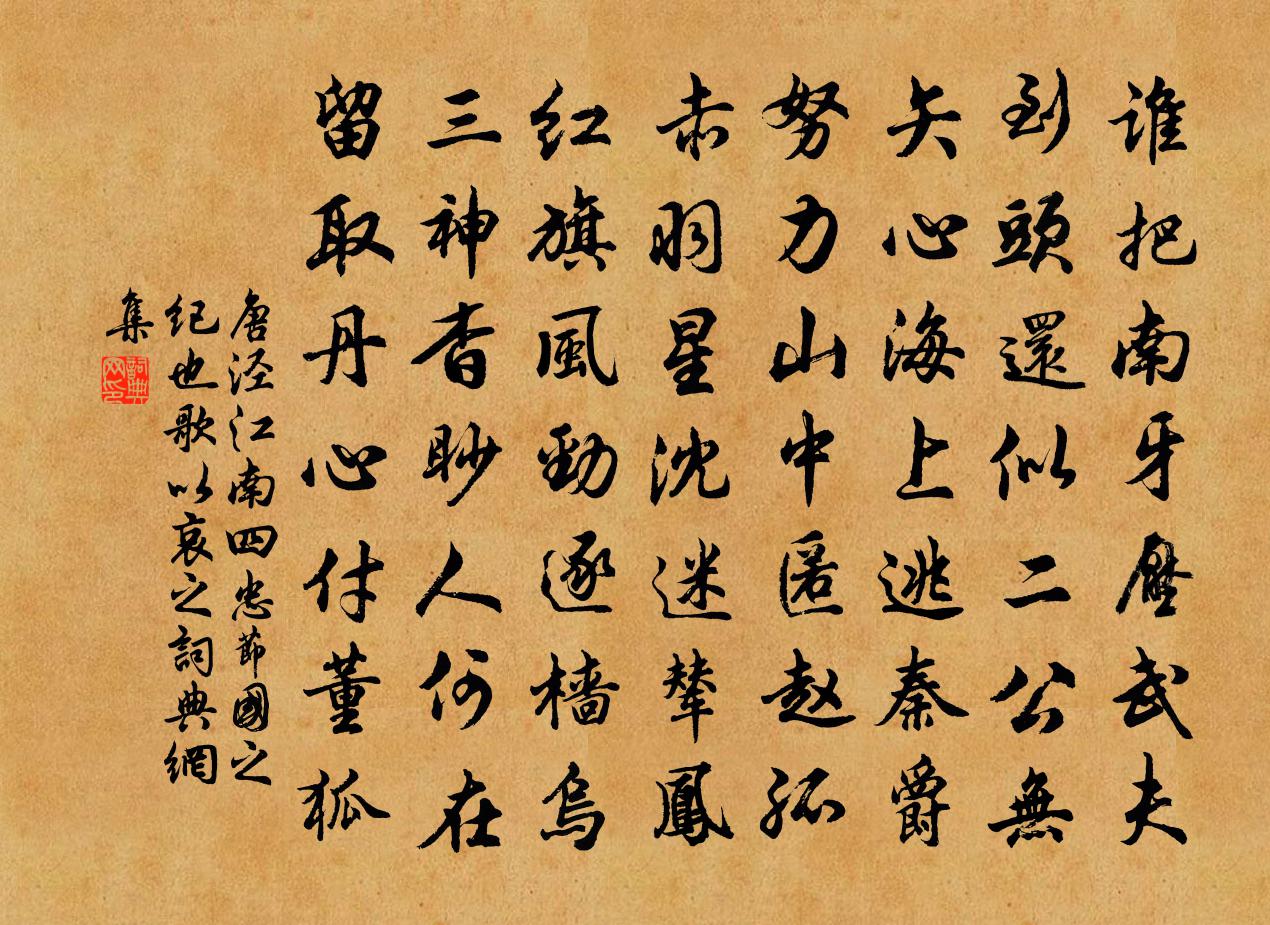 誰把南牙壓武夫
到頭還似二公無
矢心海上逃秦爵
努力山中匿趙孤
赤羽星沈迷輦鳳
红旗風勁逐檣烏
三神杳眇人何在
留取丹心付董狐
唐涇江南四忠節國之
紀也歌以哀之詞典網
集
詞典网印